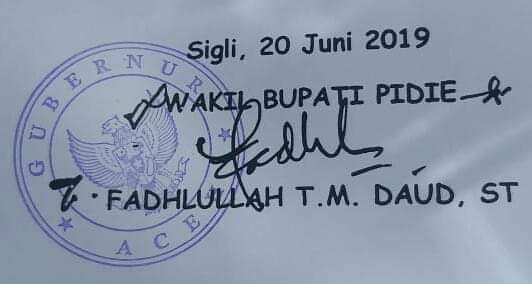 Sigli, 20 Juni 2019
WAKIL BUPATI PIDIE
FADHLULLAH T.M. DAUD, ST
GUBERNUR
ACEH